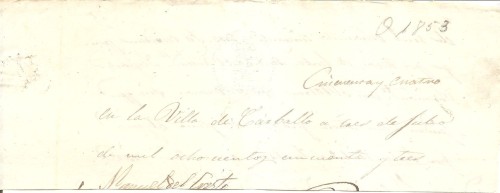 O 1853
Cincuenta y cuatro
en la Villa de Castrillo a tres de Julio
de mil ochocientos cincuenta y tres
Manuel del